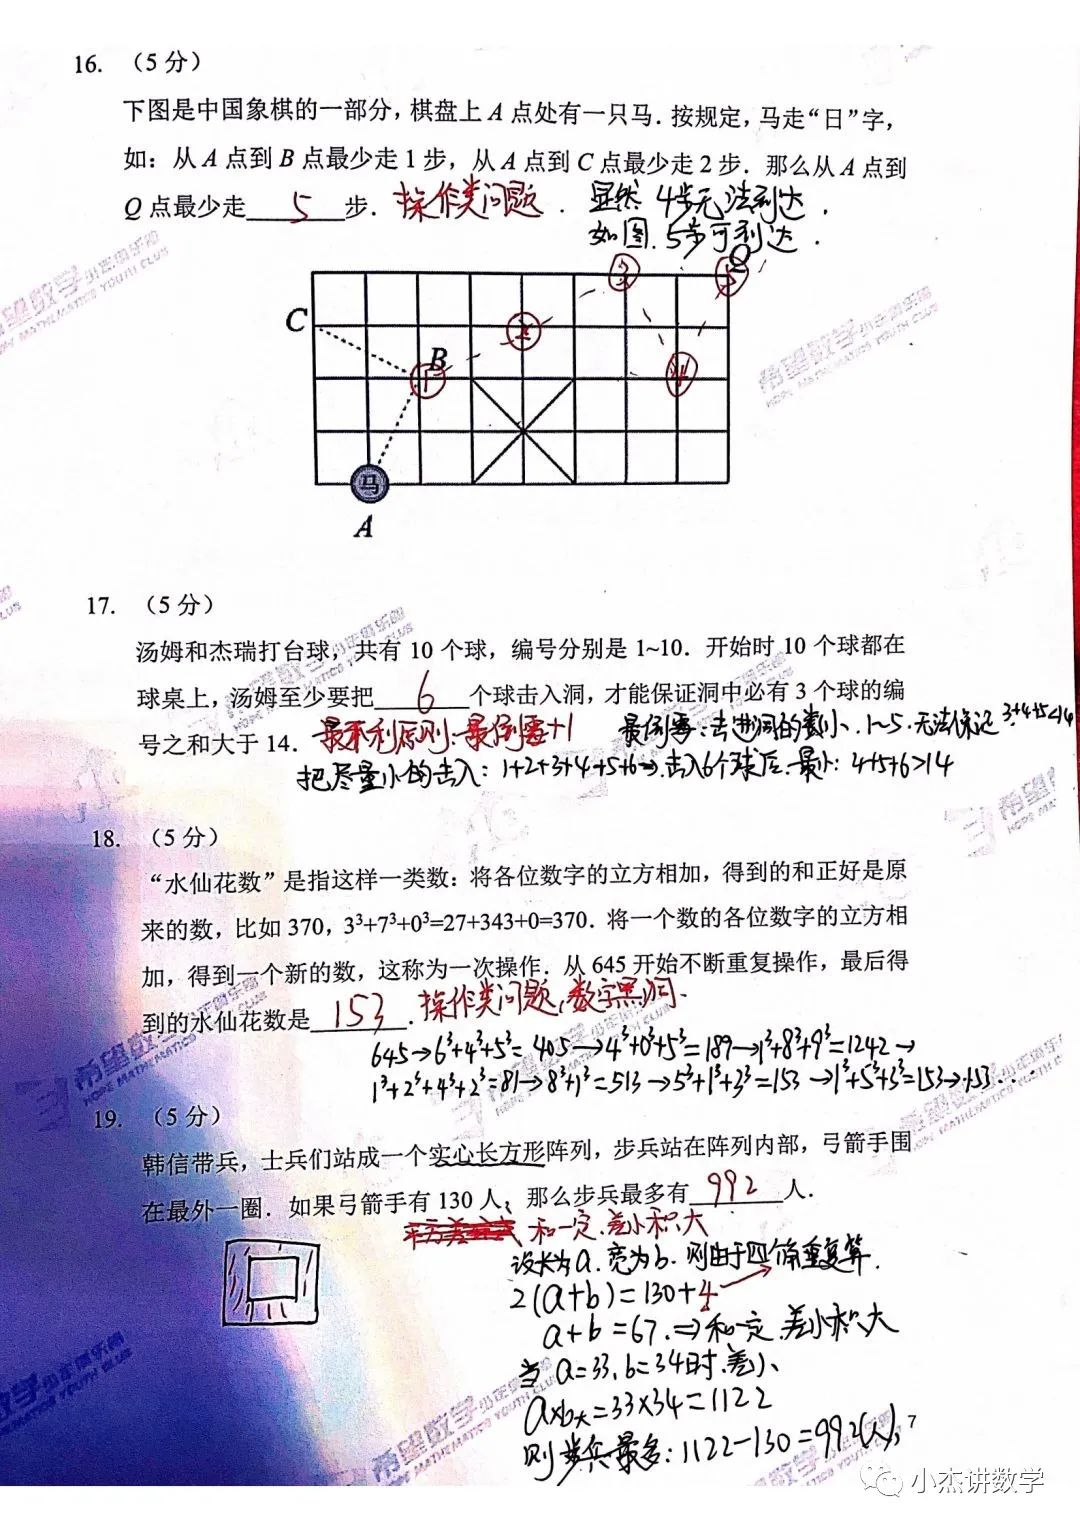 16. （5 分）
下图是中国象棋的一部分，棋盘上 A 点处有一只马．按规定，马走“日”字，
如：从 A 点到 B 点最少走 1 步，从 A 点到 C 点最少走 2 步．那么从 A 点到
Q 点最少走 5 步．操作类问题．显然 4步无法到达．
如图．5步可到达．
Q
③
⑤
C
②
B
①
④
马
A
17. （5 分）
汤姆和杰瑞打台球，共有 10 个球，编号分别是 1~10．开始时 10 个球都在
球桌上，汤姆至少要把 6 个球击入洞，才能保证洞中必有 3 个球的编
号之和大于 14．最不利原则．最倒霉+1 最倒霉：击进洞的数小．1~5．无法保证 3+4+5<14
把尽量小的击入：1+2+3+4+5+6⇒击入6个球后．最小：4+5+6>14
18. （5 分）
“水仙花数”是指这样一类数：将各位数字的立方相加，得到的和正好是原
来的数，比如 370，3³+7³+0³=27+343+0=370．将一个数的各位数字的立方相
加，得到一个新的数，这称为一次操作．从 645 开始不断重复操作，最后得
到的水仙花数是 153．操作类问题，数字黑洞．
645→6³+4³+5³=405→4³+0³+5³=189→1³+8³+9³=1242→
1³+2³+4³+2³=81→8³+1³=513→5³+1³+3³=153→1³+5³+3³=153→153....
19. （5 分）
韩信带兵，士兵们站成一个实心长方形阵列，步兵站在阵列内部，弓箭手围
在最外一圈．如果弓箭手有 130 人，那么步兵最多有 992 人．
和一定．差小积大
设长为a．宽为b．则由于四个角重复算．
2(a+b)=130+4
a+b=67.⇒和一定．差小积大
当 a=33，b=34时．差小
a×b大=33×34=1122
则步兵最多：1122-130=992(人)
7
小杰讲数学
希望数学少年俱乐部
HOPE MATHEMATICS YOUTH CLUB